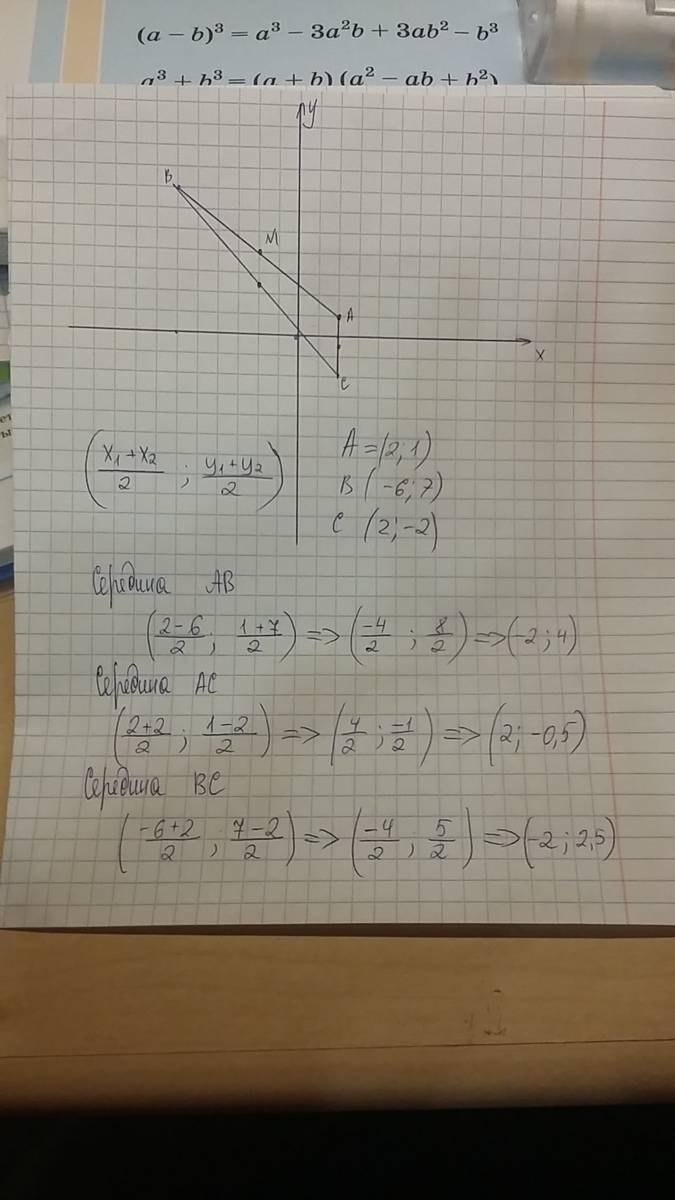 (a − b)³ = a³ − 3a²b + 3ab² − b³
a³ + b³ = (a + b) (a² − ab + b²)
y
B
M
A
x
C
(x₁+x₂/2 ; y₁+y₂/2)
A = (2; 1)
B (-6; 7)
C (2; -2)
Середина AB
(2-6/2 ; 1+7/2) => (-4/2 ; 8/2) => (-2 ; 4)
Середина AC
(2+2/2 ; 1-2/2) => (4/2 ; -1/2) => (2; -0,5)
Середина BC
(-6+2/2 ; 7-2/2) => (-4/2 ; 5/2) => (-2 ; 2,5)